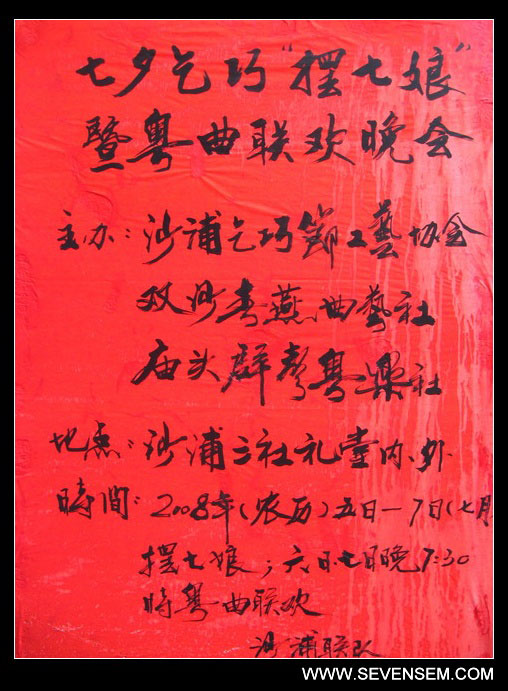 七夕乞巧“摆七娘”
暨粤曲联欢晚会
主办：沙浦乞巧節工藝协会
双沙青燕曲藝社
庙头群聲粤樂社
地点：沙浦三社礼堂内、外
時間：2008年（农历）五日一7日（七月
摆七娘；六日七日晚7:30
時粤曲联欢
沙浦联队
WWW.SEVENSEM.COM